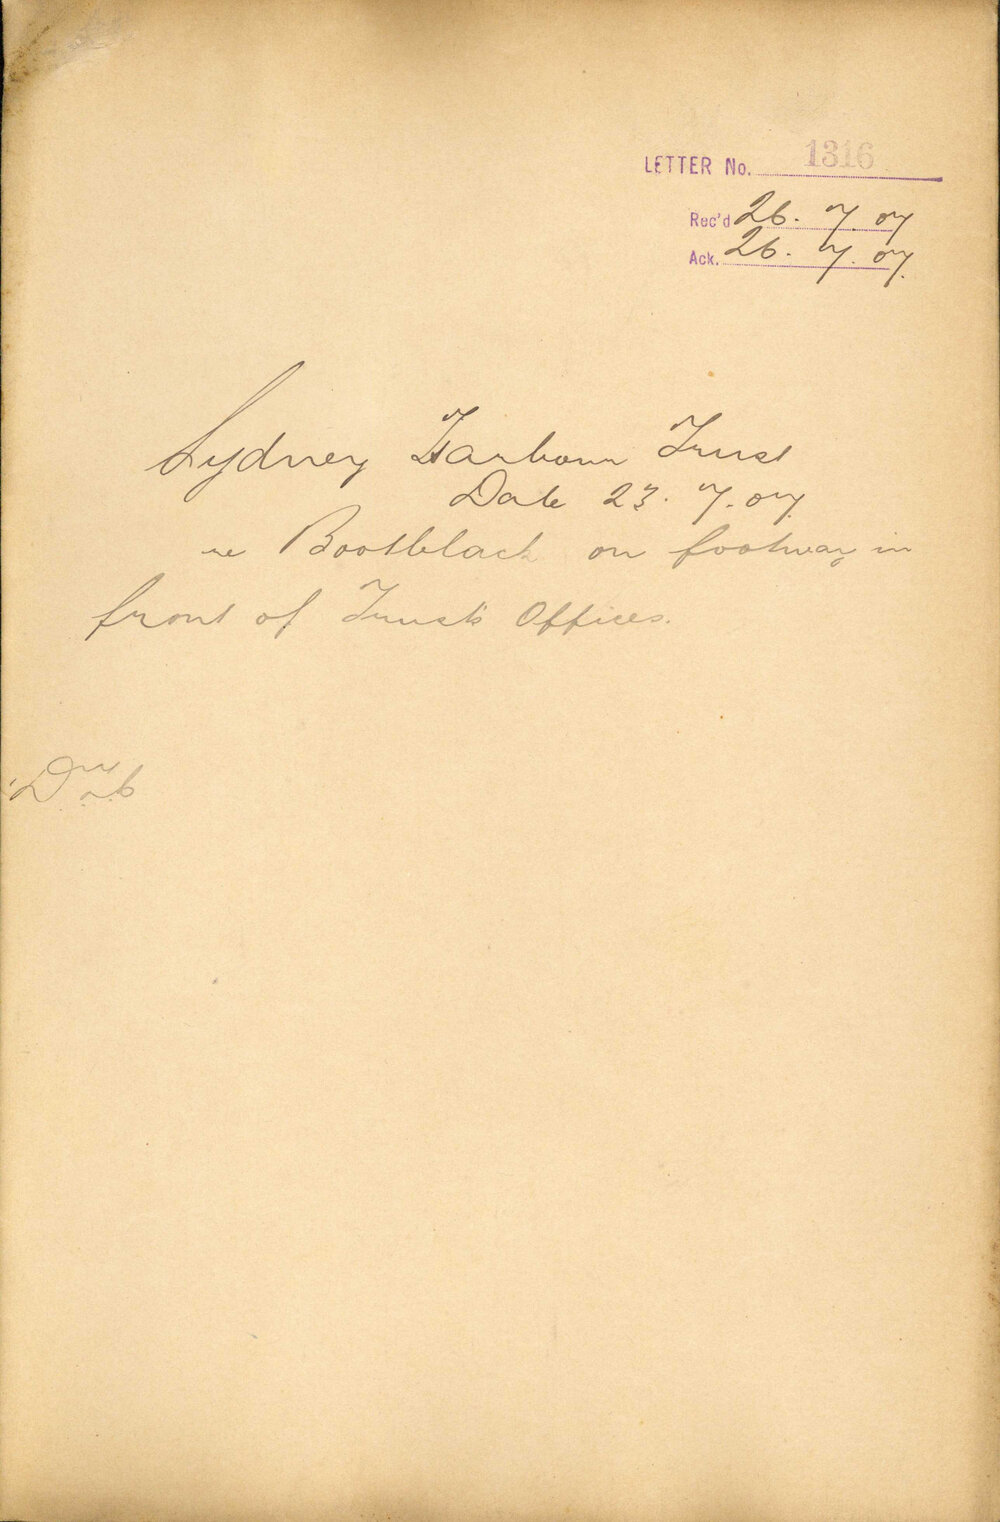 LETTER No. 1316
Rec'd 26. 7. 07
Ack. 26. 7. 07.
Sydney Harbour Trust
Date 23. 7. 07.
re Bootblack on footway in
front of Trust's Offices.